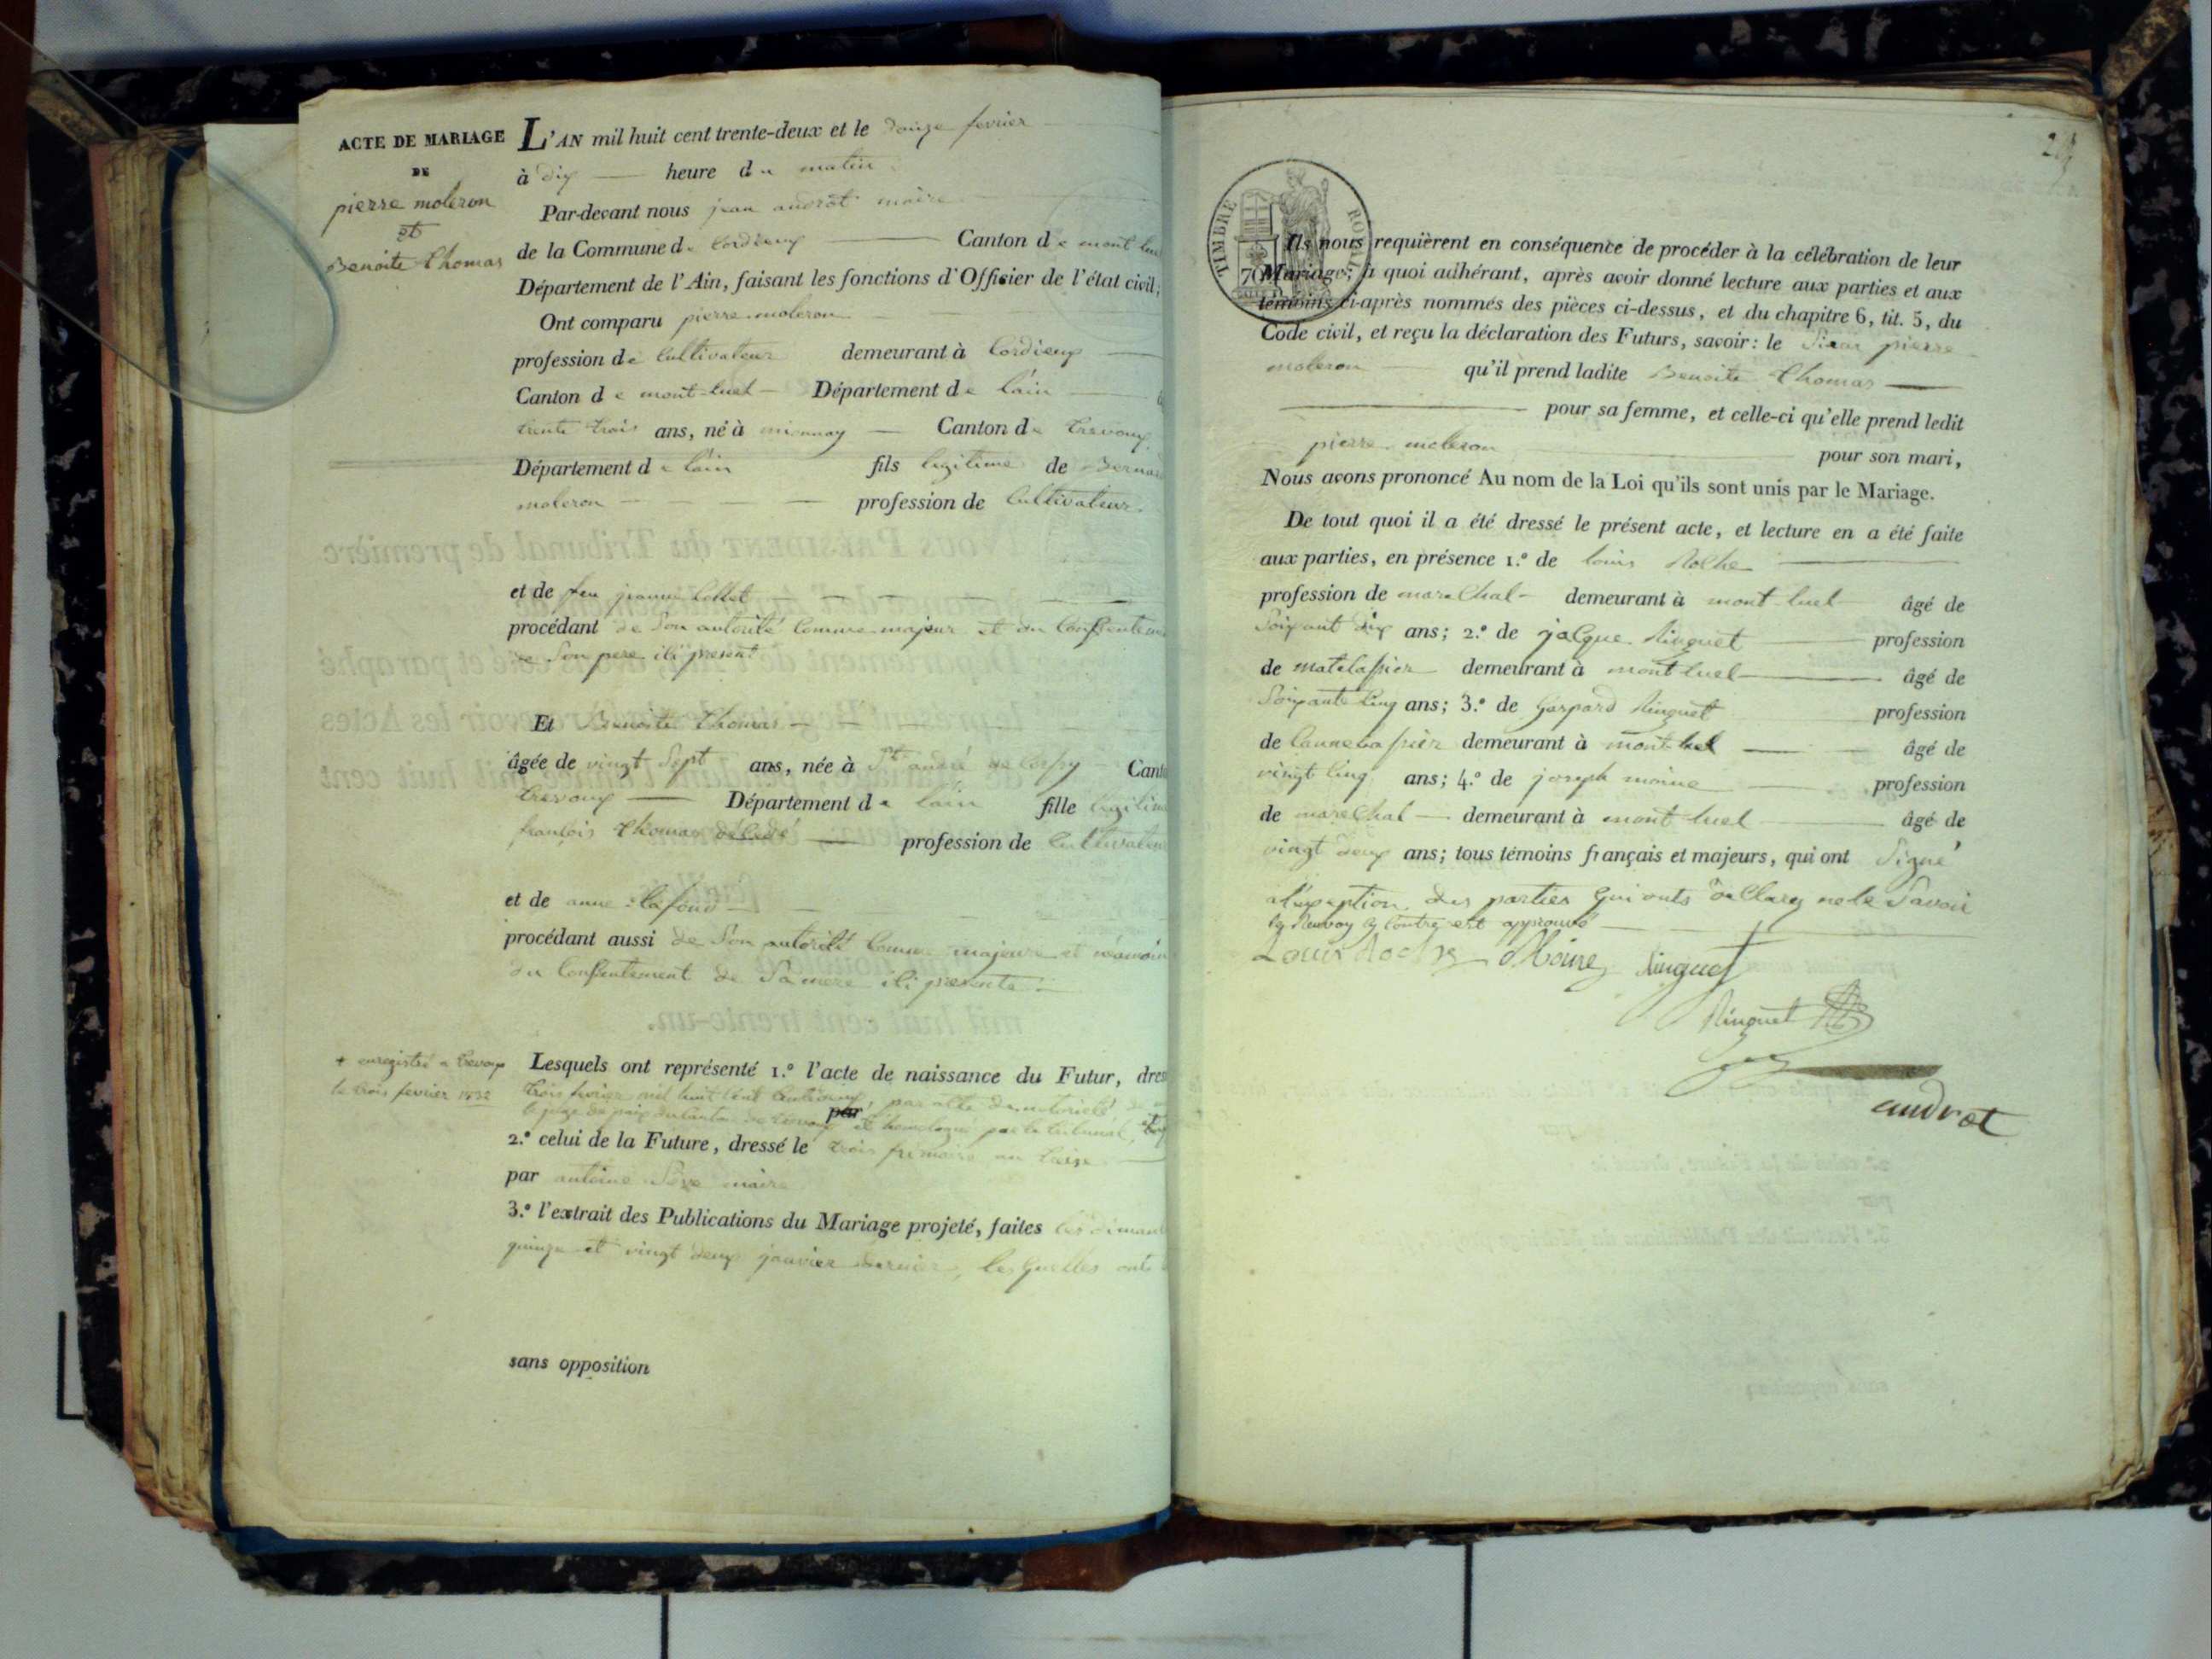 ACTE DE MARIAGE
DE
pierre moleron
et
Benoite Thomas
L'AN mil huit cent trente-deux et le douze fevrier
à dix heure du matin
Par-devant nous jean androt maire
de la Commune de Cordieux Canton de mont luel
Département de l'Ain, faisant les fonctions d'Officier de l'état civil;
Ont comparu pierre moleron
profession de Cultivateur demeurant à Cordieux
Canton de mont-luel Département de lain
trente trois ans, né à mionnay Canton de trevoux
Département de lain fils legitime de Bernard
moleron profession de Cultivateur
et de feu jeanne Collet
procédant de Son autorité Comme majeur et du
de Son pere ici present
Et Benoite Thomas
âgée de vingt Sept ans, née à St andré de Corsy
trevoux Département de lain fille
françois Thomas profession de Cultivateur
et de anne lafond
procédant aussi de Son autorité Comme majeure et
du Consentement de Sa mere ici presente
+ enregistré a trevoux
le trois fevrier 1832
Lesquels ont représenté 1.º l'acte de naissance du Futur,
trois fevrier mil huit Cent trente deux, par acte de notorieté
le juge de paix du Canton de trevoux par et homologué par le tribunal
2.º celui de la Future, dressé le trois frimaire an treize
par antoine maire
3.º l'extrait des Publications du Mariage projeté, faites les
quinze et vingt deux janvier dernier, lesquelles onts
sans opposition
TIMBRE ROYAL
Ils nous requièrent en conséquence de procéder à la célébration de leur
Mariage; à quoi adhérant, après avoir donné lecture aux parties et aux
témoins ci-après nommés des pièces ci-dessus, et du chapitre 6, tit. 5, du
Code civil, et reçu la déclaration des Futurs, savoir: le Sieur pierre
moleron qu'il prend ladite Benoite Thomas
pour sa femme, et celle-ci qu'elle prend ledit
pierre moleron pour son mari,
Nous avons prononcé Au nom de la Loi qu'ils sont unis par le Mariage.
De tout quoi il a été dressé le présent acte, et lecture en a été faite
aux parties, en présence 1.º de louis Roche
profession de marechal demeurant à mont-luel âgé de
Soixant dix ans; 2.º de jacque Ringuet profession
de matelassier demeurant à mont luel âgé de
Soixante Cinq ans; 3.º de Gaspard Ringuet profession
de demeurant à mont-luel âgé de
vingt Cinq ans; 4.º de joseph moine profession
de marechal demeurant à mont luel âgé de
vingt deux ans; tous témoins français et majeurs, qui ont Signé
a l'exeption des parties qui onts ne le Savoir
le Renvoy Cy Contre est approuvé
Louis Roche Moine Ringuet
Ringuet
androt